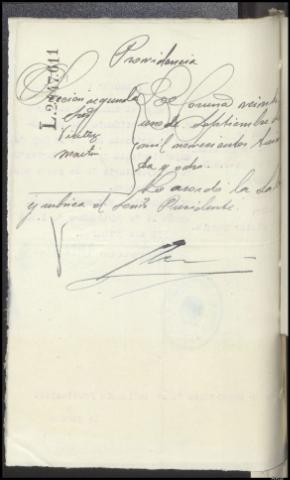 L.2747.011
Providencia
Sección segunda
Sres
Martin
La Coruña veinte
uno de Septiembre de
mil novecientos trein
ta y ocho.
Lo acordó la Sala
y rubrica el Señor Presidente.